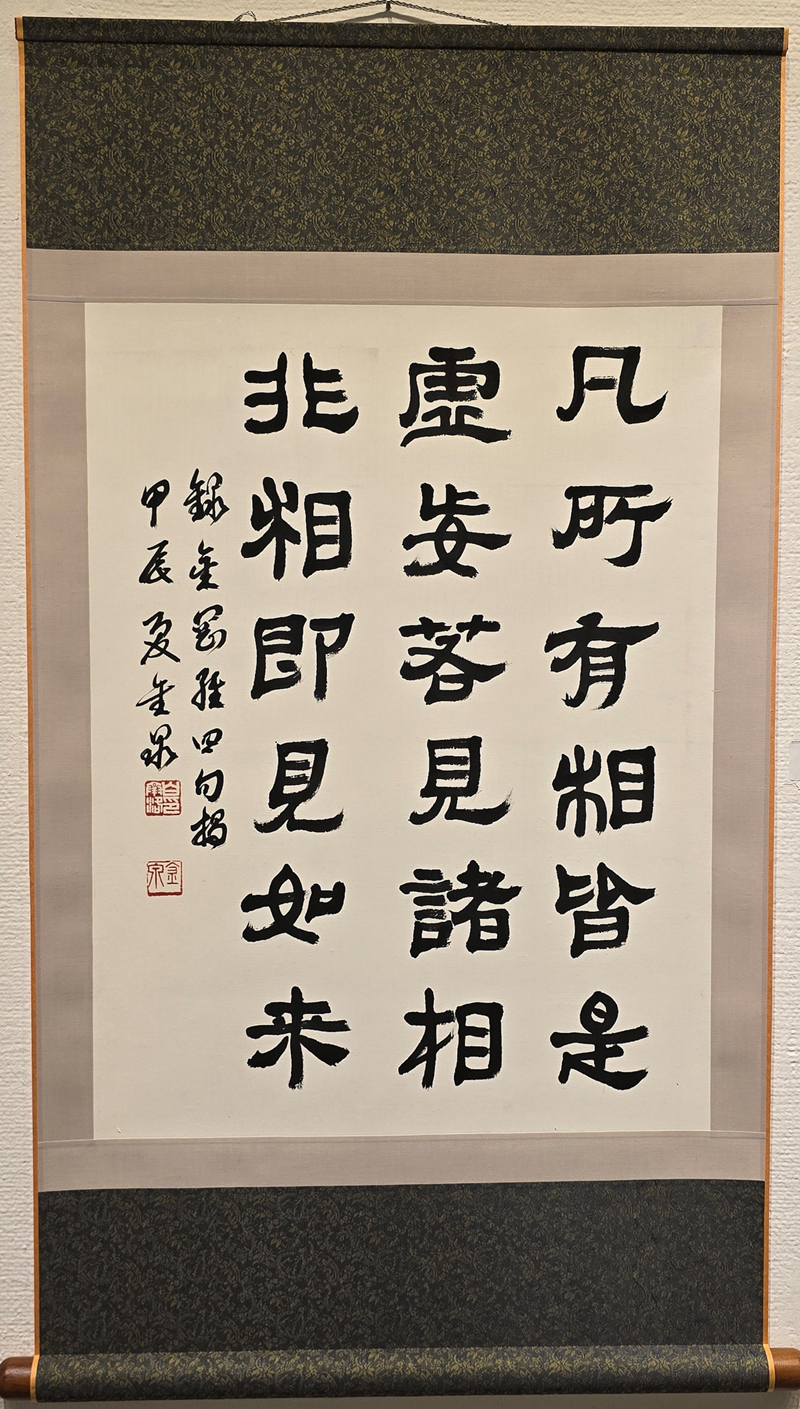 凡所有相皆是
虛妄若見諸相
非相即見如来
録金剛經四句偈
甲辰夏金泉
金泉